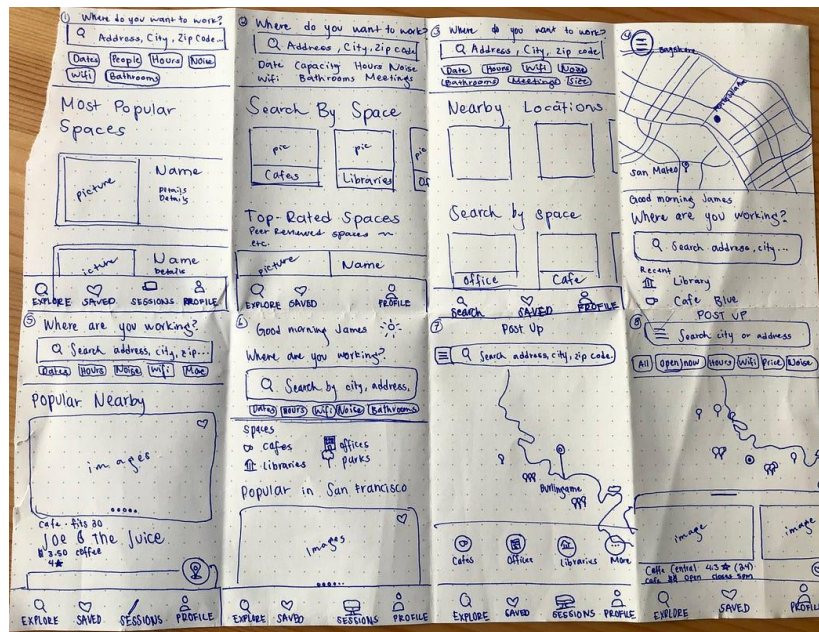 ① Where do you want to work?
Address, City, Zip Code...
Dates People Hours Noise
Wifi Bathrooms
Most Popular
Spaces
picture
Name
Details
Details
picture
Name
Details
EXPLORE SAVED SESSIONS PROFILE
② Where do you want to work?
Address, City, zip code
Date Capacity Hours Noise
Wifi Bathrooms Meetings
Search By Space
pic pic pic
Cafes Libraries
Top-Rated Spaces
Peer Reviewed spaces
etc.
picture Name
EXPLORE SAVED PROFILE
③ Where do you want to work?
Address, City, zip code
Date Hours Wifi Noise
Bathrooms Meetings Size
Nearby Locations
Search by space
Office Cafe
Search SAVED PROFILE
④
Bayshore
San Mateo
Good morning James
Where are you working?
Search address, city...
Recent
Library
Cafe Blue
⑤ Where are you working?
Search address, city, zip...
Dates Hours Noise Wifi More
Popular Nearby
images
Cafe · fits 30
Joe & the Juice
$3.50 coffee
4★
EXPLORE SAVED SESSIONS PROFILE
⑥ Good morning James
Where are you working?
Search by city, address,
Dates Hours Wifi Noise Bathrooms
Spaces
cafes offices
libraries parks
Popular in San Francisco
Images
EXPLORE SAVED SESSIONS PROFILE
⑦ Post Up
Search address, city, zip code.
Burlingame
Cafes Office Libraries More
EXPLORE SAVED SESSIONS PROFILE
⑧ POST UP
Search city or address
All Open now Hours Wifi Price Noise
image image
Caffe Central 4.3★ (24)
cafe $$ open closes 5pm
EXPLORE SAVED PROFILE